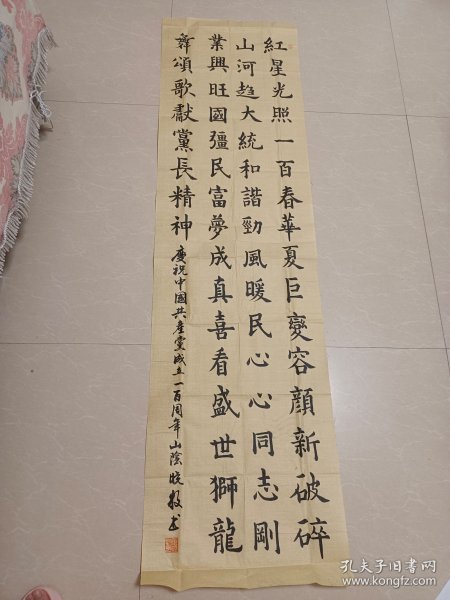 紅星光照一百春華夏巨變容顏新破碎
山河趋大統和諧勁風暖民心心同志剛
業興旺國彊民富夢成真喜看盛世獅龍
舞頌歌獻黨長精神
慶祝中國共產黨成立一百周年山陰晓書
孔夫子旧书网
www.kongfz.com